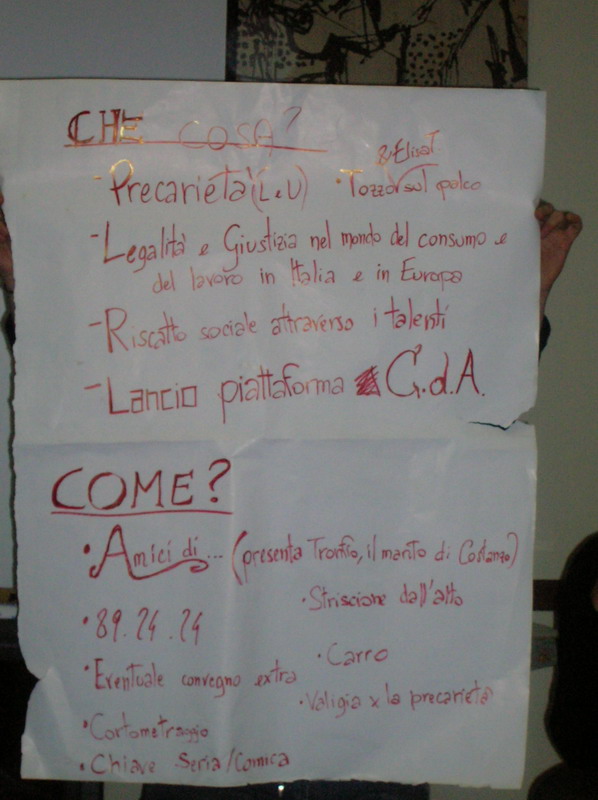 CHE COSA?
- Precarietà (L e U)
& Elisa T
• Tozzo sul palco
- Legalità e Giustizia nel mondo del consumo e
del lavoro in Italia e in Europa
- Riscatto sociale attraverso i talenti
- Lancio piattaforma G.d.A.
COME?
• Amici di... (presenta Tronfio, il marito di Costanzo)
• Striscione dall'alto
• 89.24.24
• Carro
• Eventuale convegno extra
• Valigia x la precarietà
• Cortometraggio
• Chiave Seria/Comica